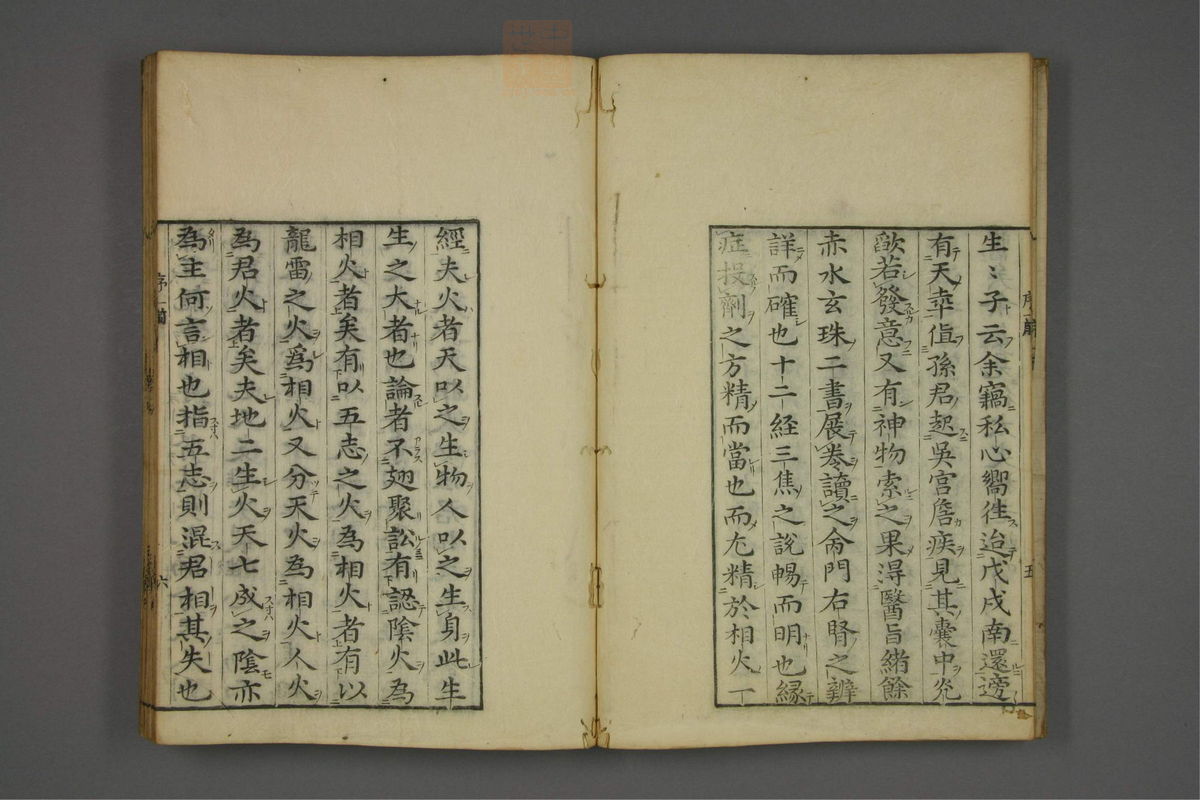 生〻子云余竊私心嚮徃迨戊戌南還遊
有天幸値孫君起吳宮詹疾見其囊中 
歐若發意又有神物索之果淂醫旨緒餘
赤水玄珠二書展巻讀之命門右腎之辨
詳而確也十二経三焦之說暢而明也縁
症投劑之方精而當也而尢精於相火一
五
經夫火者天以之生物人以之生身此生
生之大者也論者不翅聚訟有認陰火為
相火者矣有以五志之火為相火者有以
龍雷之火爲相火又分天火為相火人火
為君火者矣夫地二生火天七成之陰亦
為主何言相也指五志則混君相其失也
六